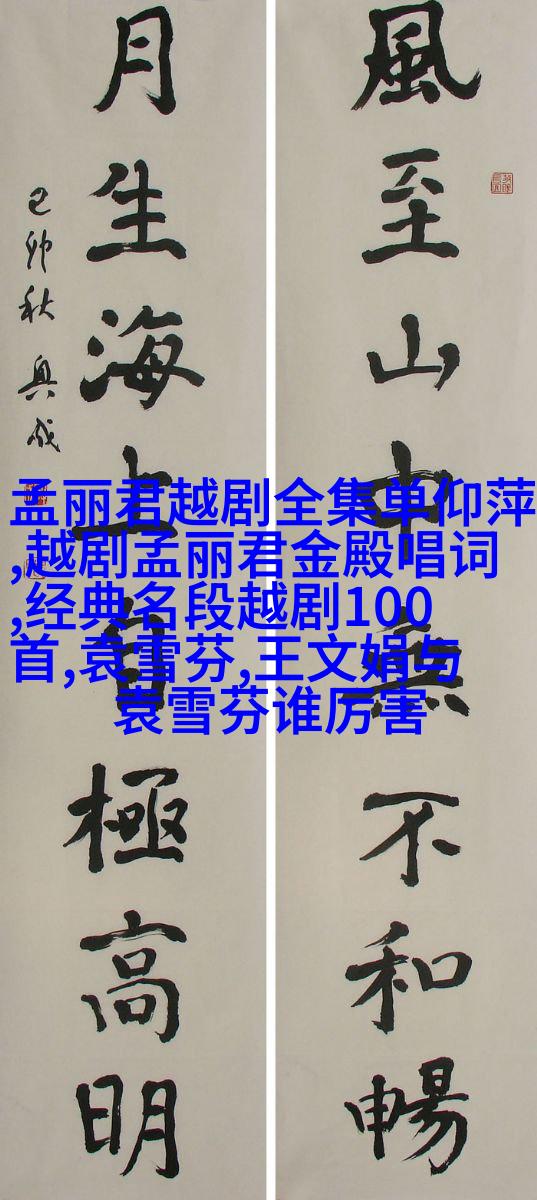 風至山中無不和暢
月生海上自極高明
己卯秋
孟丽君越剧全集单仰萍
,越剧孟丽君金殿唱词
,经典名段越剧100
首,袁雪芬,王文娟与
袁雪芬谁厉害